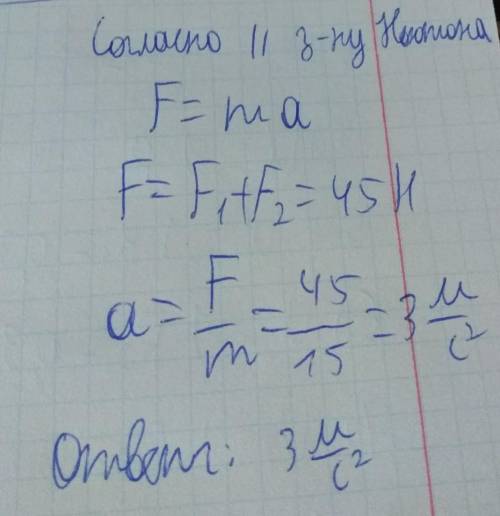 Согласно II з-ну Ньютона
F = ma
F = F₁+F₂ = 45 Н
a = F/m = 45/15 = 3 м/с²
Ответ: 3 м/с²